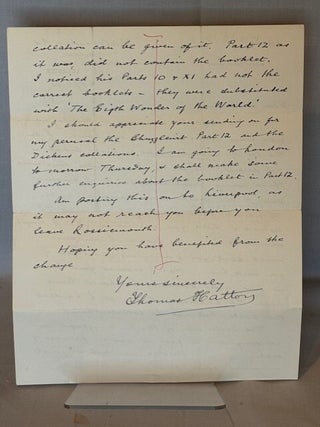 collation can be given of it. Part 12 as
it was, did not contain the booklet.
I noticed his Parts 10 & XI had not the
correct booklets – they were substituted
with 'The Eigth Wonder of the World.'
I should appreciate your sending on for
my perusal the Chuzzlewit Part 12 and the
Dickens collations. I am going to London
to morrow Thursday, & shall make some
further enquiries about the booklet in Part 12.
Am posting this on to Liverpool, as
it may not reach you before you
leave Rossiemouth.
Hoping you have benefited from the
change
Yours sincerely
Thomas Hatton